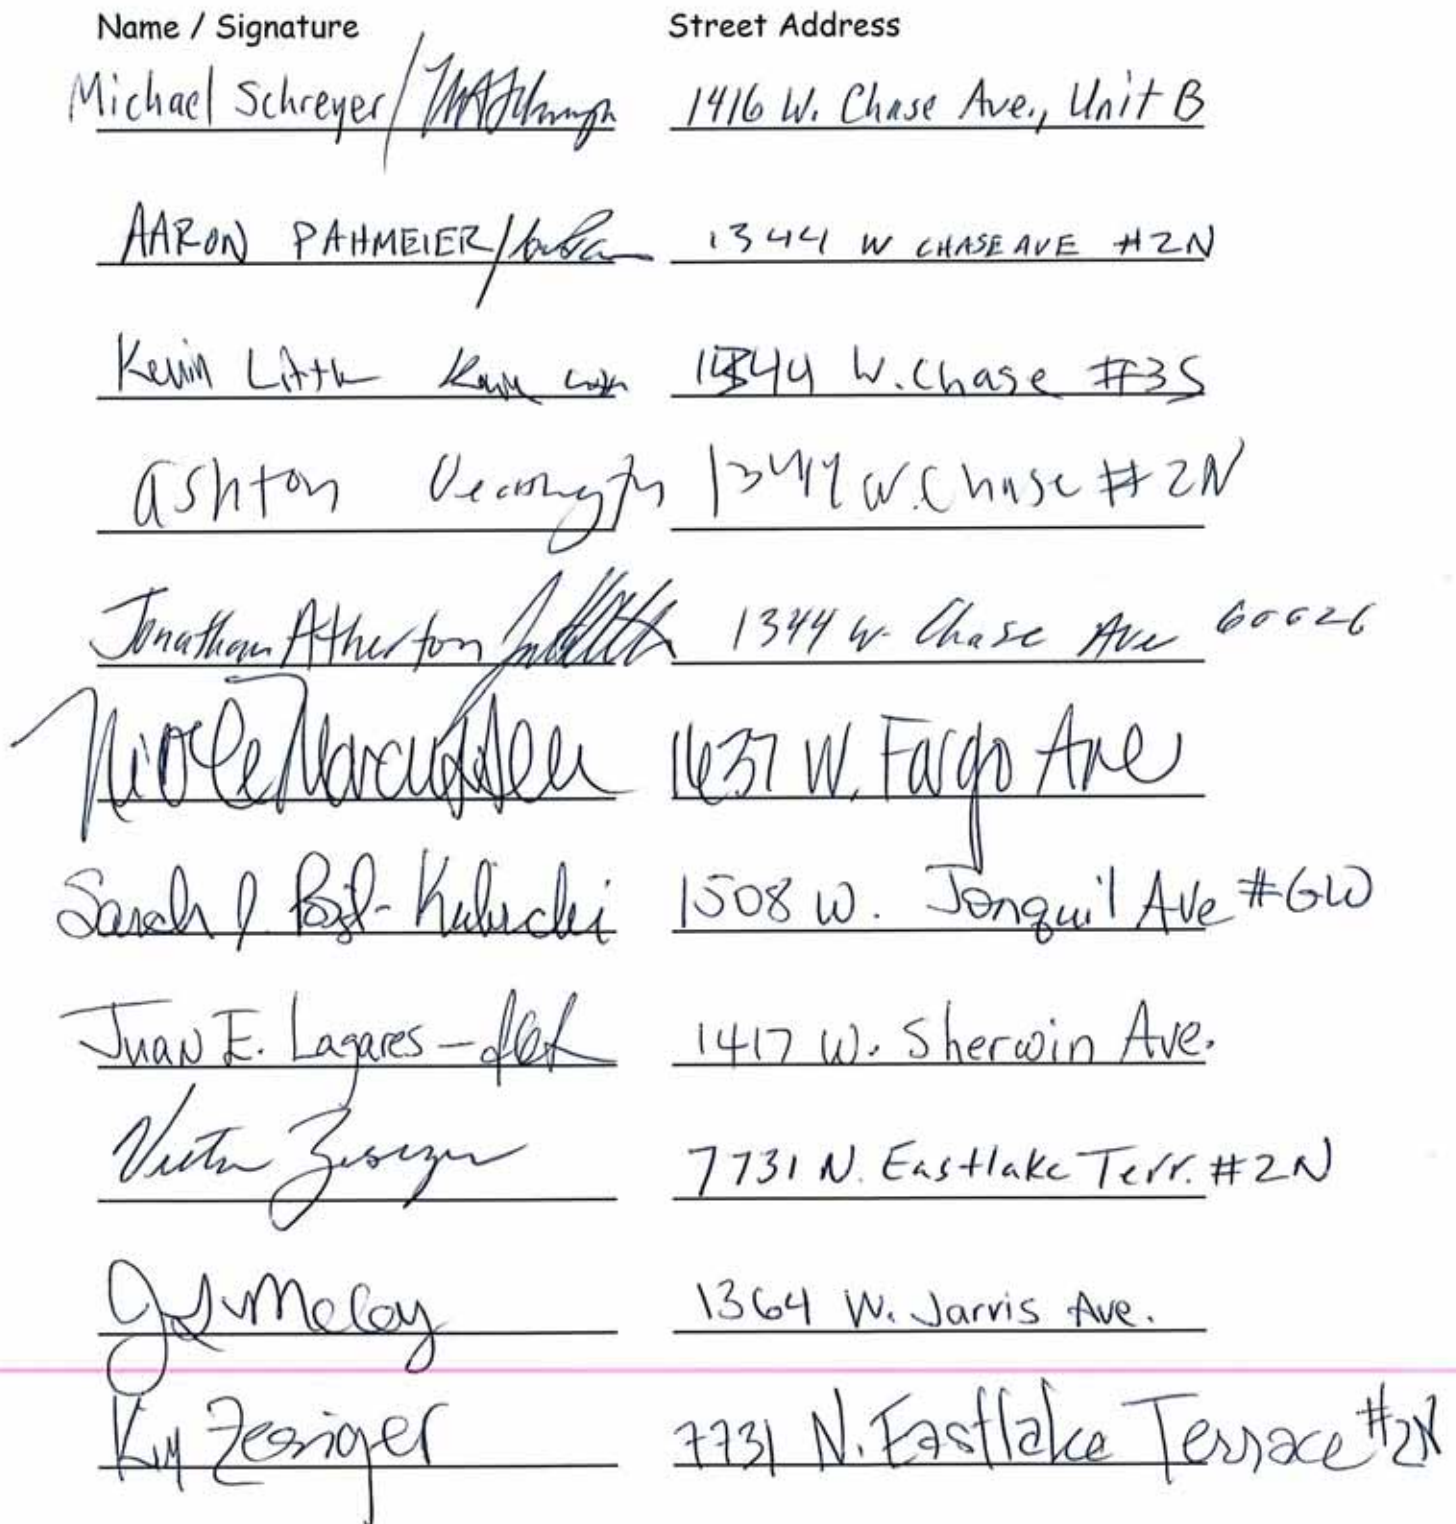 Name / Signature Street Address
Michael Schreyer/ 1416 W. Chase Ave., Unit B
AARON PAHMEIER/ 1344 W CHASE AVE #2N
Kevin Little 1344 W. Chase #3S
Ashton 1344 W. Chase #2N
Jonathan Atherton 1344 W. Chase Ave 60626
Nicole 1637 W. Fargo Ave
Sarah 1508 W. Jonquil Ave #GW
Juan E. Lagares - 1417 W. Sherwin Ave.
7731 N. Eastlake Terr. #2N
1364 W. Jarvis Ave.
Kim Zesiger 7731 N. Eastlake Terrace #2N